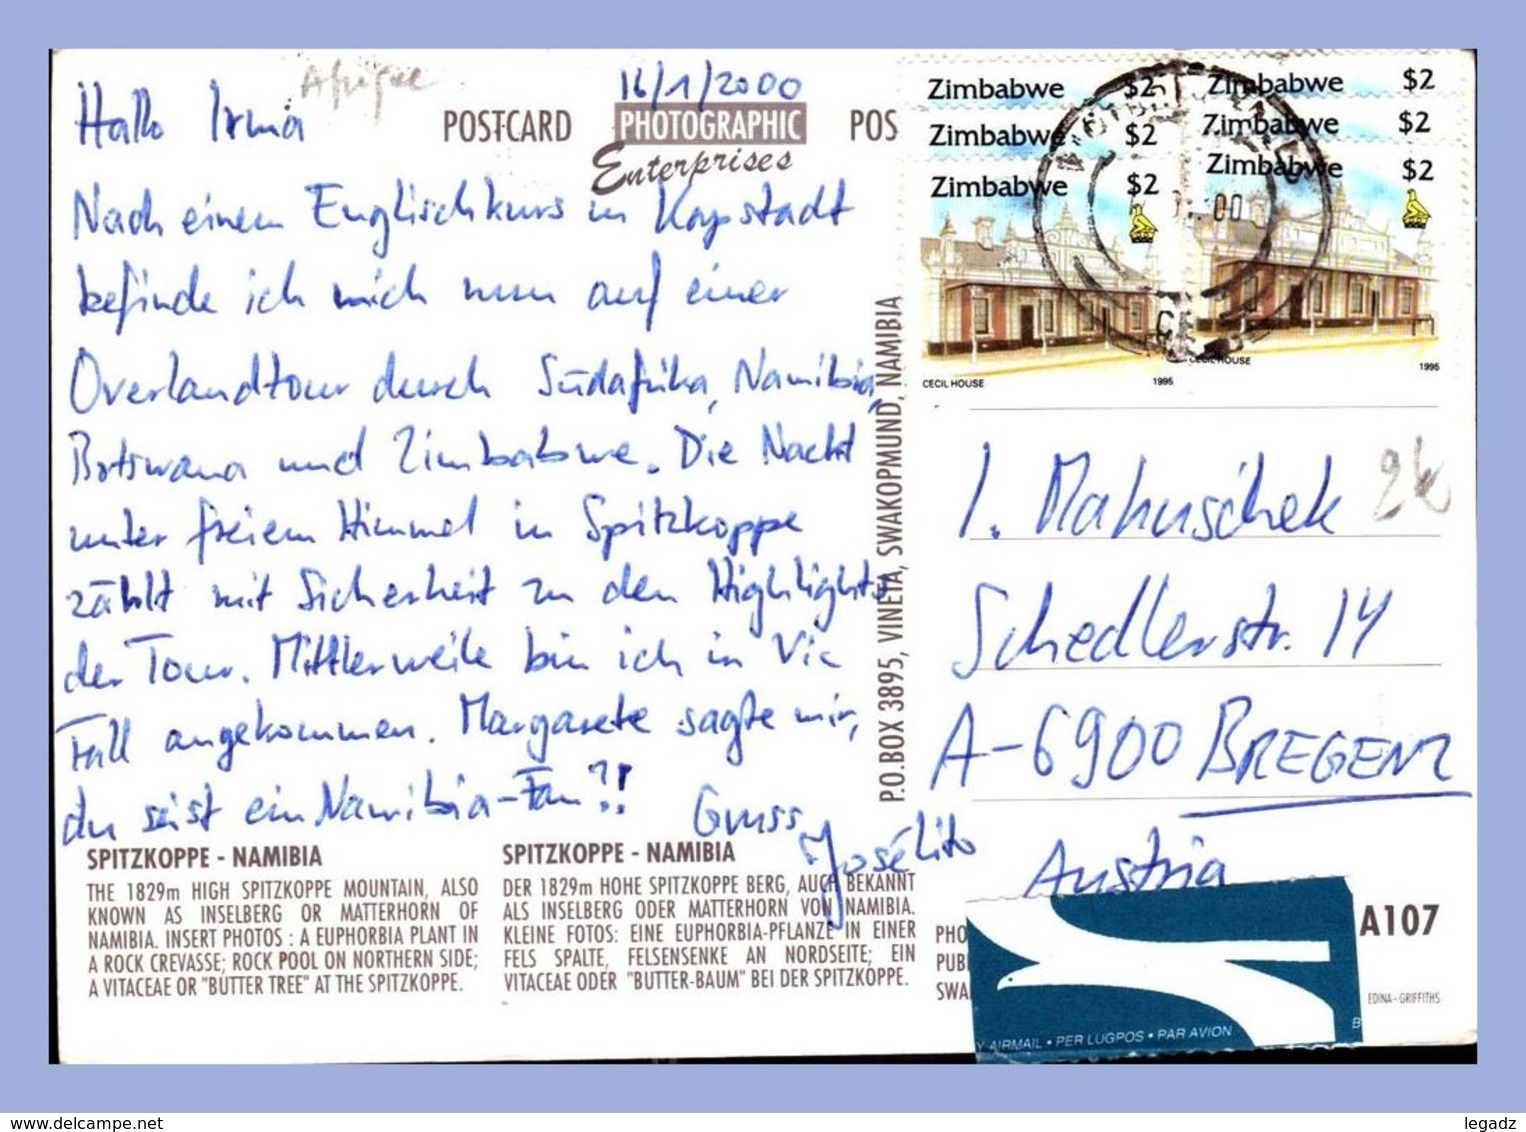 Hallo Irma
Afrique
16/1/2000
POSTCARD
PHOTOGRAPHIC
Enterprises
POS
Nach einem Englischkurs in Kapstadt
befinde ich mich nun auf einer
Overlandtour durch Südafrika, Namibia,
Botswana und Zimbabwe. Die Nacht
unter freiem Himmel in Spitzkoppe
zählt mit Sicherheit zu den Highlights
der Tour. Mittlerweile bin ich in Vic
Fall angekommen. Margarete sagte mir,
du seist ein Namibia-Fan?!
Gruss
Josélito
SPITZKOPPE - NAMIBIA
THE 1829m HIGH SPITZKOPPE MOUNTAIN, ALSO
KNOWN AS INSELBERG OR MATTERHORN OF
NAMIBIA. INSERT PHOTOS : A EUPHORBIA PLANT IN
A ROCK CREVASSE; ROCK POOL ON NORTHERN SIDE;
A VITACEAE OR "BUTTER TREE" AT THE SPITZKOPPE.
SPITZKOPPE - NAMIBIA
DER 1829m HOHE SPITZKOPPE BERG, AUCH BEKANNT
ALS INSELBERG ODER MATTERHORN VON NAMIBIA.
KLEINE FOTOS: EINE EUPHORBIA-PFLANZE IN EINER
FELS SPALTE, FELSENSENKE AN NORDSEITE; EIN
VITACEAE ODER "BUTTER-BAUM" BEI DER SPITZKOPPE.
P.O.BOX 3895, VINETA, SWAKOPMUND, NAMIBIA
Zimbabwe $2
Zimbabwe $2
Zimbabwe $2
CECIL HOUSE 1995
Zimbabwe $2
Zimbabwe $2
Zimbabwe $2
CECIL HOUSE 1995
I. Mahnuschek
Schedlerstr. 14
A-6900 BREGENZ
Austria
PHO
PUB
SWA
A107
EDINA - GRIFFITHS
Y AIRMAIL • PER LUGPOS • PAR AVION
B
www.delcampe.net
legadz